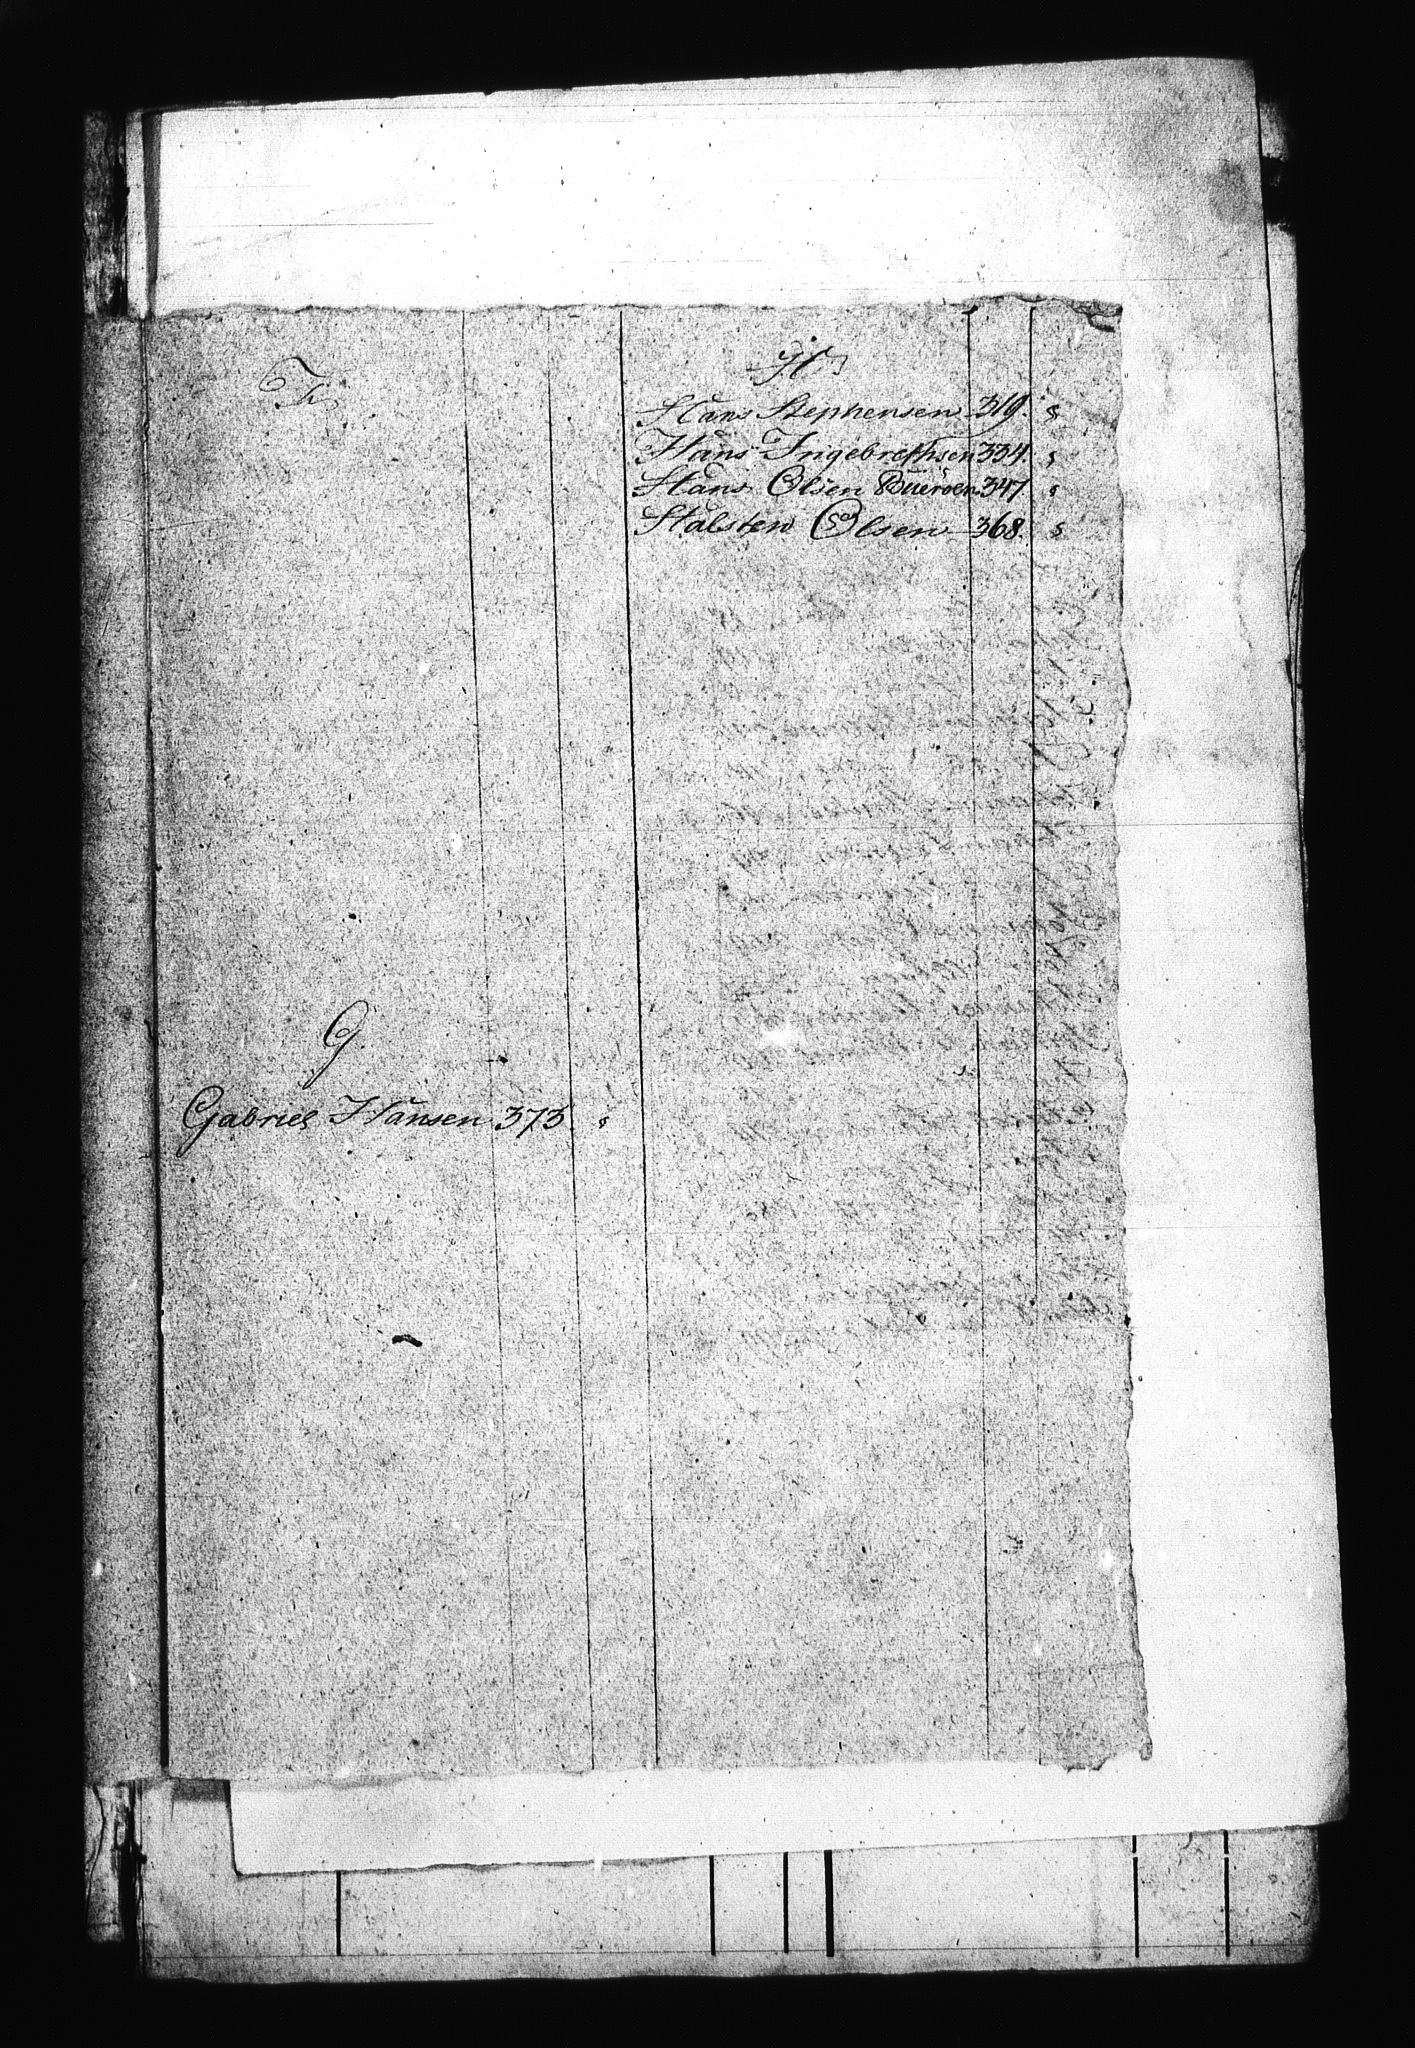 F.
G.
Gabriel Hansen 373 s
H.
Hans Stephensen 319. s
Hans Ingebrethsen 334. s
Hans Olsen Bueröen 347 s
Halsten Olsen 368. s